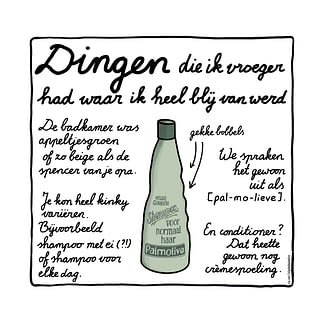 Dingen die ik vroeger
had waar ik heel blij van werd
De badkamer was
appeltjesgroen
of zo beige als de
spencer van je opa.
Je kon heel kinky
variëren.
Bijvoorbeeld
shampoo met ei (?!)
of shampoo voor
elke dag.
Shampoo
voor
normaal
haar
Palmolive
gekke bobbels
We spraken
het gewoon
uit als
[pal-mo-lieve].
En conditioner?
Dat heette
gewoon nog
crèmespoeling.